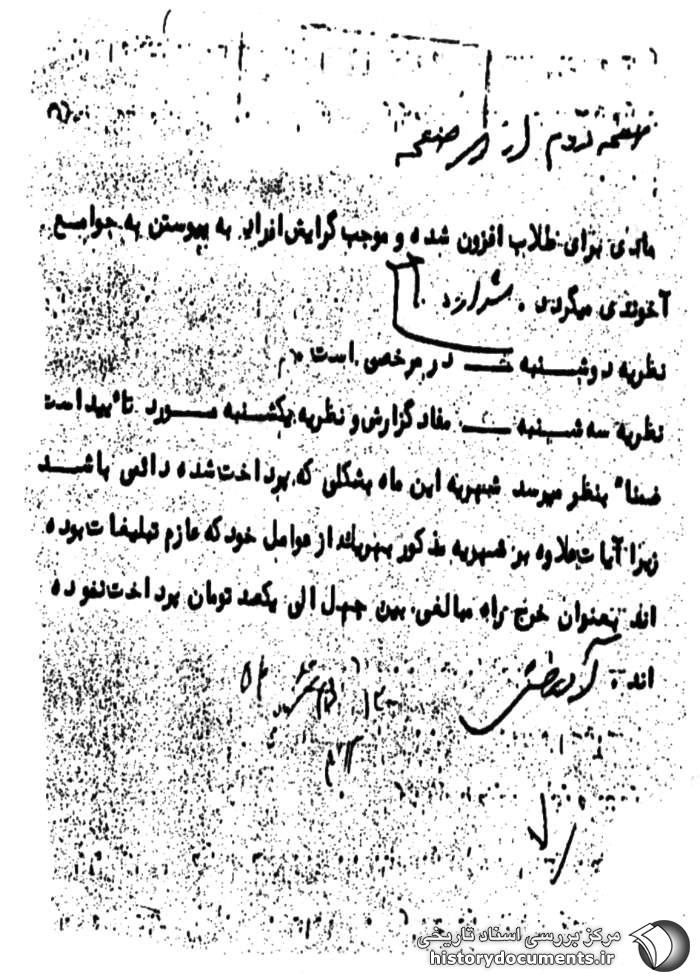 صفحه دوم از صفحه
مادی برای طلاب افزون شده و موجب گرایش افراد به پیوستن به جوامع
آخوندی میگردد .
نظریه دوشنبه ــ در مرخصی است .
نظریه سه شنبه ــ مفاد گزارش و نظریه یکشنبه مورد تائید است
ضمنا" بنظر میرسد شهریه این ماه بشکلی که پرداخت شده دائمی باشد
زیرا آیات علاوه بر شهریه مذکور بهریک از عوامل خود که عازم تبلیغات بوده
اند بعنوان خرج راه مبالغی بین چهل الی یکصد تومان پرداخت نموده
اند .
مرکز بررسی اسناد تاریخی
historydocuments.ir